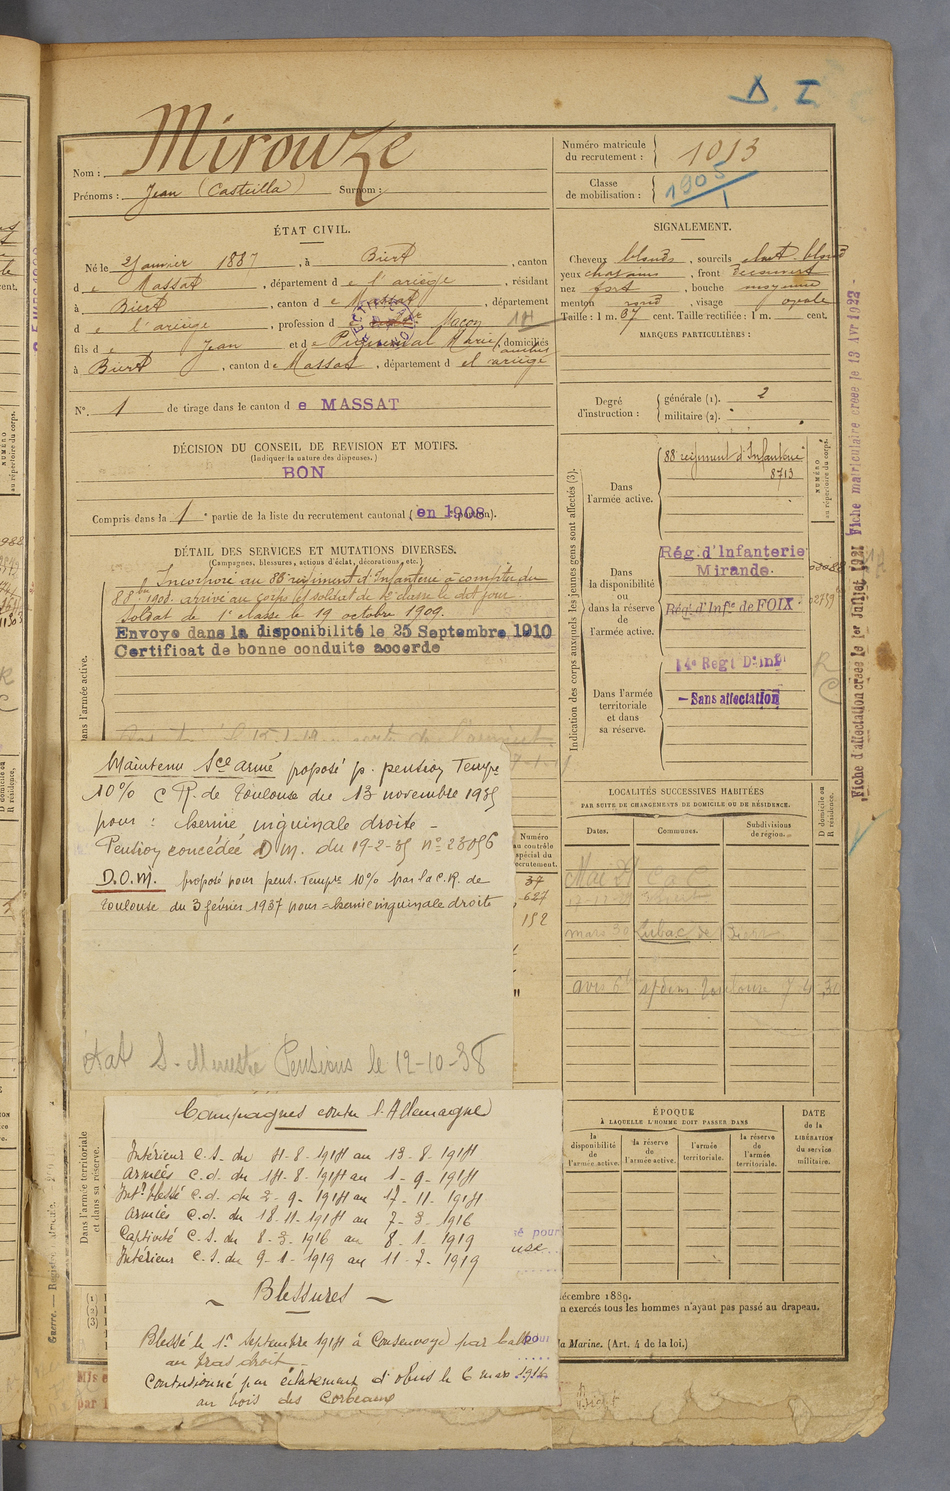 D. I
Mirouze
Nom :
Prénoms : Jean (Casteilla) Surnom :
Numéro matricule du recrutement : 1013
Classe de mobilisation : 1905
ÉTAT CIVIL.
Né le 2 janvier 1887, à Biert, canton
de Massat, département de l'ariège, résidant
à Biert, canton de Massat, département
de l'ariège, profession de Maçon
fils de Jean et de Marie, domiciliés
à Biert, canton de Massat, département de l'ariège
N° 1 de tirage dans le canton de MASSAT
DÉCISION DU CONSEIL DE REVISION ET MOTIFS.
(Indiquer la nature des dispenses.)
BON
Compris dans la 1e partie de la liste du recrutement cantonal (en 1908
DÉTAIL DES SERVICES ET MUTATIONS DIVERSES.
(Campagnes, blessures, actions d'éclat, décorations, etc.)
Incorporé au 88e régiment d'Infanterie à compter du
8 8bre 1908. arrivé au corps et soldat de 2e classe le dit jour
Soldat de 1e classe le 19 octobre 1909.
Envoyé dans la disponibilité le 25 Septembre 1910
Certificat de bonne conduite accordé
Dans l'armée active.
SIGNALEMENT.
Cheveux blonds, sourcils chat. blond
yeux chatains, front découvert
nez fort, bouche moyenne
menton rond, visage ovale
Taille : 1 m. 67 cent. Taille rectifiée : 1 m. cent.
MARQUES PARTICULIÈRES :
Degré d'instruction : générale (1). 2
militaire (2).
Indication des corps auxquels les jeunes gens sont affectés (3).
NUMÉRO au répertoire du corps.
Dans l'armée active.
88 régiment d'Infanterie
8713
Dans la disponibilité ou dans la réserve de l'armée active.
Rég. d'Infanterie
Mirande.
Rég. d'Infie de FOIX.
Dans l'armée territoriale et dans sa réserve.
14e Regt D'Inf
— Sans affectation
Fiche d'affectation créée le 1er Juillet 1921 Fiche matriculaire créée le 13 Avr 1922
Maintenu Sce armé proposé p. pension Tempre
10% C R. de Toulouse du 13 novembre 1935
pour : hernie inguinale droite -
Pension concédée D M. du 19-2-35 n° 23056
D.O.M. proposé pour pens. Tempre 10% par la C.R. de
Toulouse du 3 février 1937 pour = hernie inguinale droite
état S- Ministre Pensions le 12-10-38
Numéro au contrôle spécial du recrutement.
37
627
152
LOCALITÉS SUCCESSIVES HABITÉES
PAR SUITE DE CHANGEMENTS DE DOMICILE OU DE RÉSIDENCE.
Dates. Communes. Subdivisions de région. D domicile ou R résidence.
Campagnes contre l'Allemagne
Intérieur C.S. du 4-8-1914 au 13-8-1914
Armées C.d. du 14-8-1914 au 1-9-1914
Intr blessé C.d. du 2-9-1914 au 17-11-1914
Armées C.d. du 18-11-1914 au 7-3-1916
Captivité C.S. du 8-3-1916 au 8-1-1919
Intérieur C.S. du 9-1-1919 au 11-7-1919
~ Blessures ~
Blessé le 1er Septembre 1914 à Consenvoye par balle
au bras droit -
Contusionné par éclatement d'obus le 6 mars 1916
au bois des Corbeaux
Dans l'armée territoriale et dans sa réserve.
ÉPOQUE
À LAQUELLE L'HOMME DOIT PASSER DANS
la disponibilité de l'armée active.
la réserve de l'armée active.
l'armée territoriale.
la réserve de l'armée territoriale.
DATE de la LIBÉRATION du service militaire.
décembre 1889.
n exercés tous les hommes n'ayant pas passé au drapeau.
la Marine. (Art. 4 de la loi.)